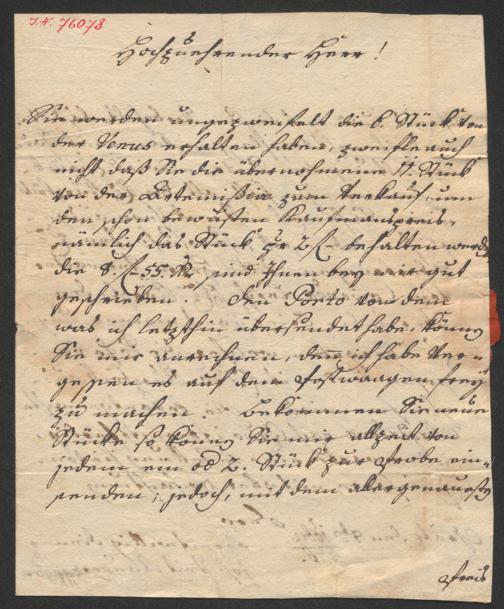 I.N. 76078
Hochzuehrender Herr!
Sie werden ungezweifelt die 6. Stück von
der Venus erhalten haben, zweifle auch
nicht, daß Sie die übernohmene 11. Stück
von der Artemisia zum Verkauf, um
den schon bewusten Kaufmanspreis,
nämlich das Stück pr 2 f behalten werden
die 8 f 55 Xr sind Ihnen bey mir gut
geschrieben. Den Porto von dem
was ich letzthin übersendet habe, könn̄
Sie mir anrechnen, den̄ ich habe ver-
gessen es auf dem Postwaagen frey
zu machen. Bekommen Sie neue
Stücke so könn̄ Sie mir allzeit von
jedem ein od 2. Stück zur Probe ein-
senden; jedoch, mit dem allergenauesten
Preis